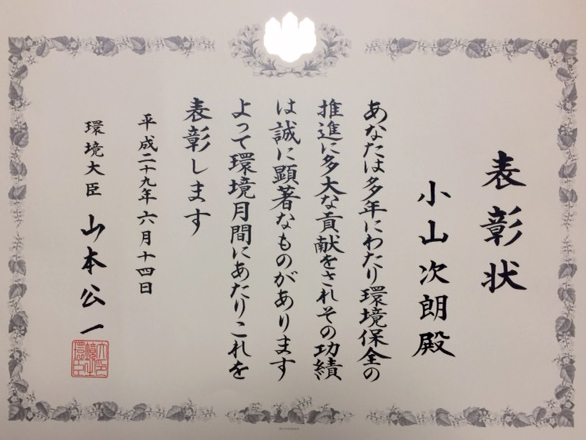 表彰状
小山次朗殿
あなたは多年にわたり環境保全の
推進に多大な貢献をされその功績
は誠に顕著なものがあります
よって環境月間にあたりこれを
表彰します
平成二十九年六月十四日
環境大臣 山本公一